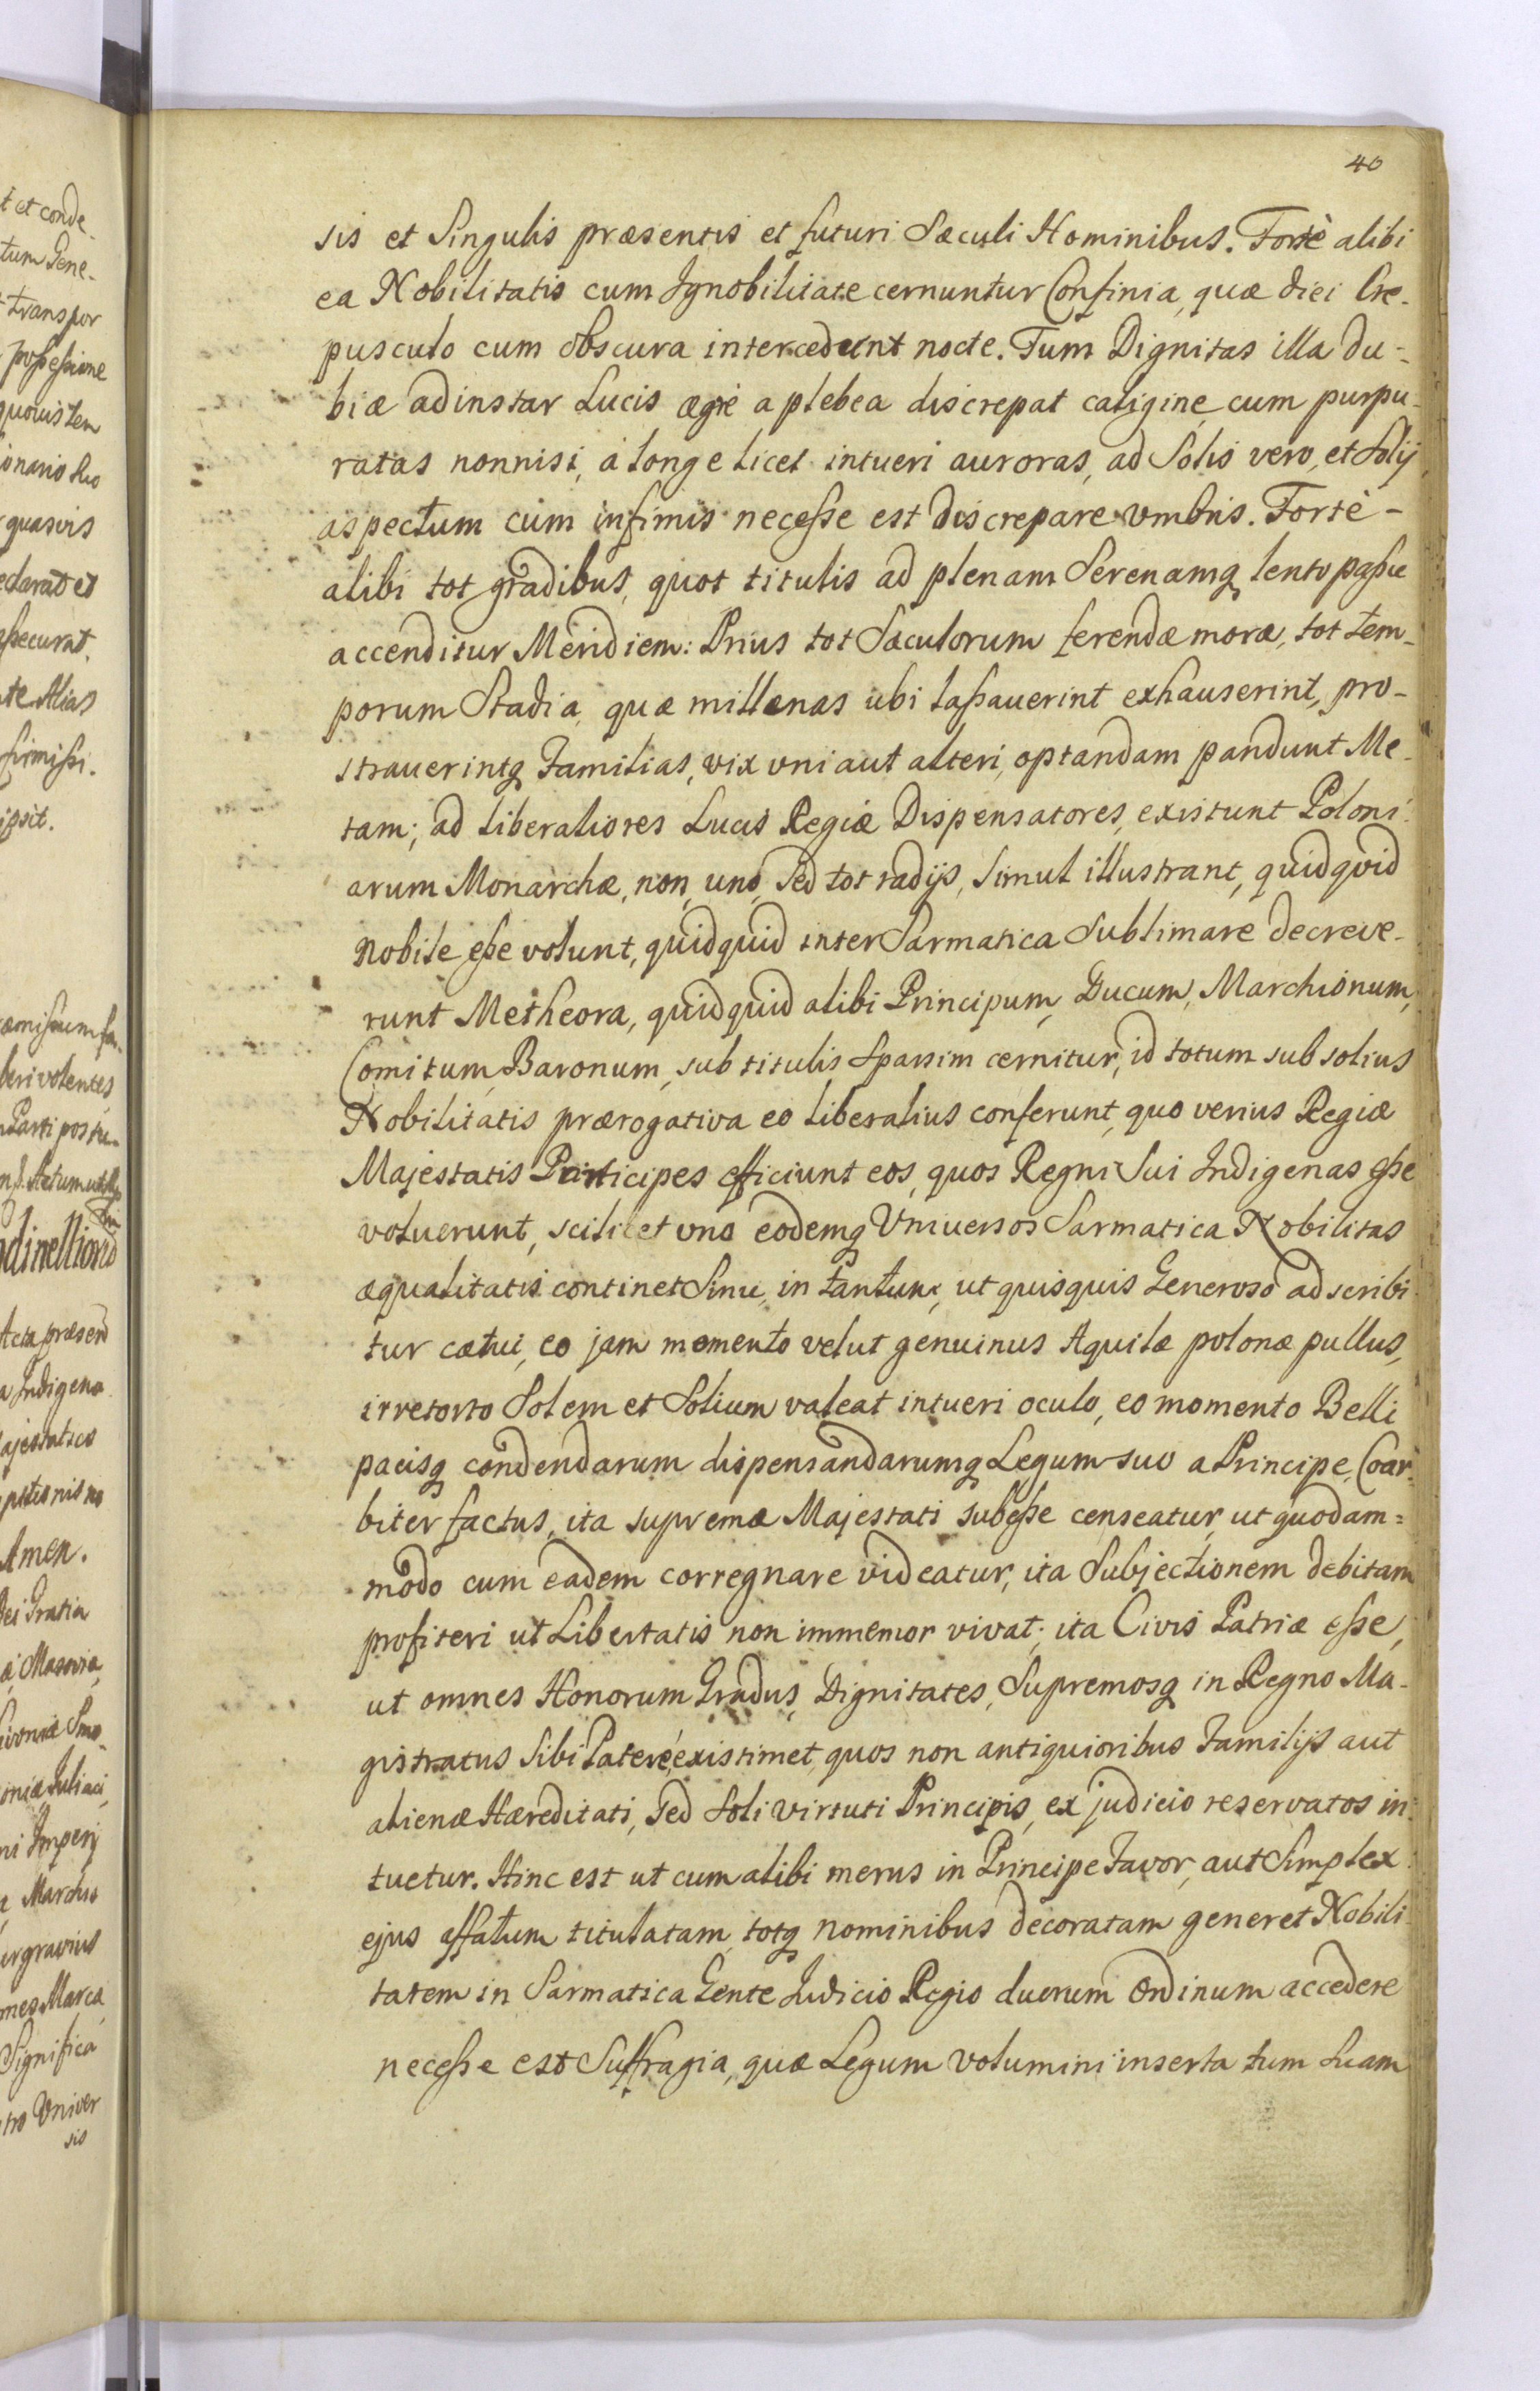 40
sis et Singulis præsentis et futuri Sæculi Hominibus. Fortè alibi
ea Nobilitatis cum Ignobilitate cernuntur Confinia, quæ diei Cre-
pusculo cum obscura intercedunt nocte. Tum Dignitas illa du-
biæ adinstar Lucis ægrè a plebea discrepat caligine, cum purpu-
ratas nonnisi, à longe licet intueri auroras, ad Solis vero, et Solij
aspectum cùm infimis necesse est discrepare vmbris. Fortè-
alibi tot gradibus, quot titulis ad plenam Serenamq lento passu
accenditur Meridiem: Prius tot Sæculorum ferendæ moræ, tot tem-
porum Stadia, quæ millenas ubi lassauerint exhauserint, pro-
strauerintq Familias, vix vni aut alteri, optandam pandunt Me-
tam; ad liberaliores Lucis Regiæ Dispensatores, existunt Poloni-
arum Monarchæ, non, uno, Sed tot radijs, Simul illustrant, quidquid
nobile esse volunt, quidquid inter Sarmatica Sublimare decreve-
runt Metheora, quidquid alibi Principum, Ducum, Marchionum,
Comitum, Baronum, sub titulis Sparsim cernitur, id totum sub solius
Nobilitatis prærogativa eo liberalius conferunt, quo verius Regiæ
Majestatis Participes efficiunt eos, quos Regni Sui Indigenas esse
voluerunt, scilicet uno eodemq Vniuersos Sarmatica Nobilitas
æqualitatis continet Sinu, in tantum, ut quisquis Generoso adscribi-
tur cætui, eo jam momento velut genuinus Aquilæ polonæ pullus,
irretorto Solem et Solium valeat intueri oculo, eo momento Belli
pacisq condendarum dispensandarumq Legum suo a Principe, Coar-
biter factus, ita supremæ Majestati subesse censeatur, ut quodam=
modo cum eadem corregnare videatur, ita Subjectionem debitam
profiteri ut Libertatis non immemor vivat; ita Civis Patriæ esse,
ut omnes Honorum Gradus, Dignitates, Supremosq in Regno Ma-
gistratus Sibi Patere, existimet, quos non antiquioribus Familijs aut
alienæ Hæreditati, Sed Soli virtuti Principis, ex judicio reservatos in-
tuetur. Hinc est ut cum alibi merus in Principe Favor, aut Simplex
ejus effatum titulatam, totq nominibus decoratam generet Nobili-
tatem in Sarmatica Gente Iudicio Regio duorum Ordinum accedere
necesse est Suffragia, quæ Legum volumini inserta tum Suam